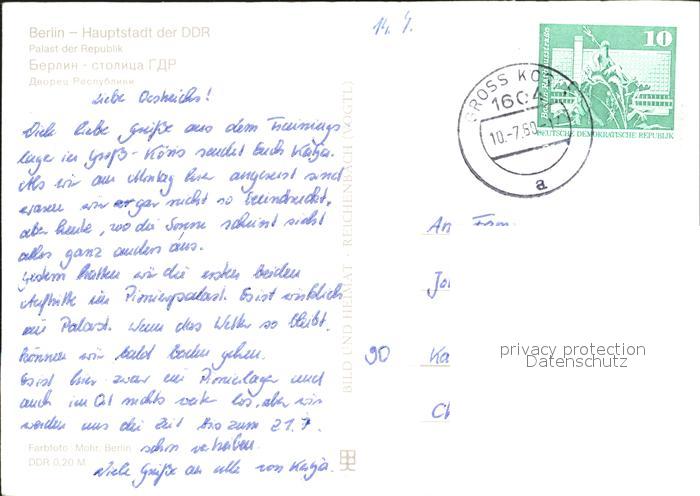 Berlin – Hauptstadt der DDR
Palast der Republik
Берлин - столица ГДР
Дворец Республики
14. 7.
10
DEUTSCHE DEMOKRATISCHE REPUBLIK
GROSS KO
1604
10.-7.80
a
Liebe Oestreichs!
Viele liebe Grüße aus dem Trainings
lager in Groß-Köris sendet Euch Katja.
Als wir am Montag hier angereist sind
waren wir gar nicht so beeindruckt,
aber heute, wo die Sonne scheint sieht
alles ganz anders aus.
Gestern hatten wir die ersten beiden
Auftritte im Pionierpalast. Es ist wirklich
ein Palast. Wenn das Wetter so bleibt,
können wir bald baden gehen.
Es ist hier zwar ein Pionierlager und
auch im Ort nichts weiter los, aber wir
werden uns die Zeit bis zum 21.7.
schon vertreiben.
Viele Grüße an alle von Katja.
Farbfoto: Mohr, Berlin
DDR 0,20 M
BILD UND HEIMAT · REICHENBACH (VOGTL)
An Fam.
90 Ka
privacy protection
Datenschutz